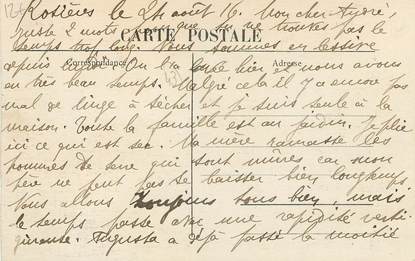 Rosières le 24 août 16. Mon cher André,
juste 2 mots pour que tu ne trouves pas le
temps trop long. Nous sommes en lessive
CARTE POSTALE
Correspondance
Adresse
depuis On l'a hier et nous avons
eu très beau temps. Malgré cela il y a encore pas
mal de linge à sécher et je suis seule à la
maison. Toute la famille est au jardin. Je plie
ici ce qui est sec. Ma mère ramasse les
pommes de terre qui sont mûres, car mon
père ne peut pas se baisser bien longtemps.
Nous allons toujours tous bien, mais
le temps passe avec une rapidité verti-
gineuse. Augusta a déjà passé la moitié